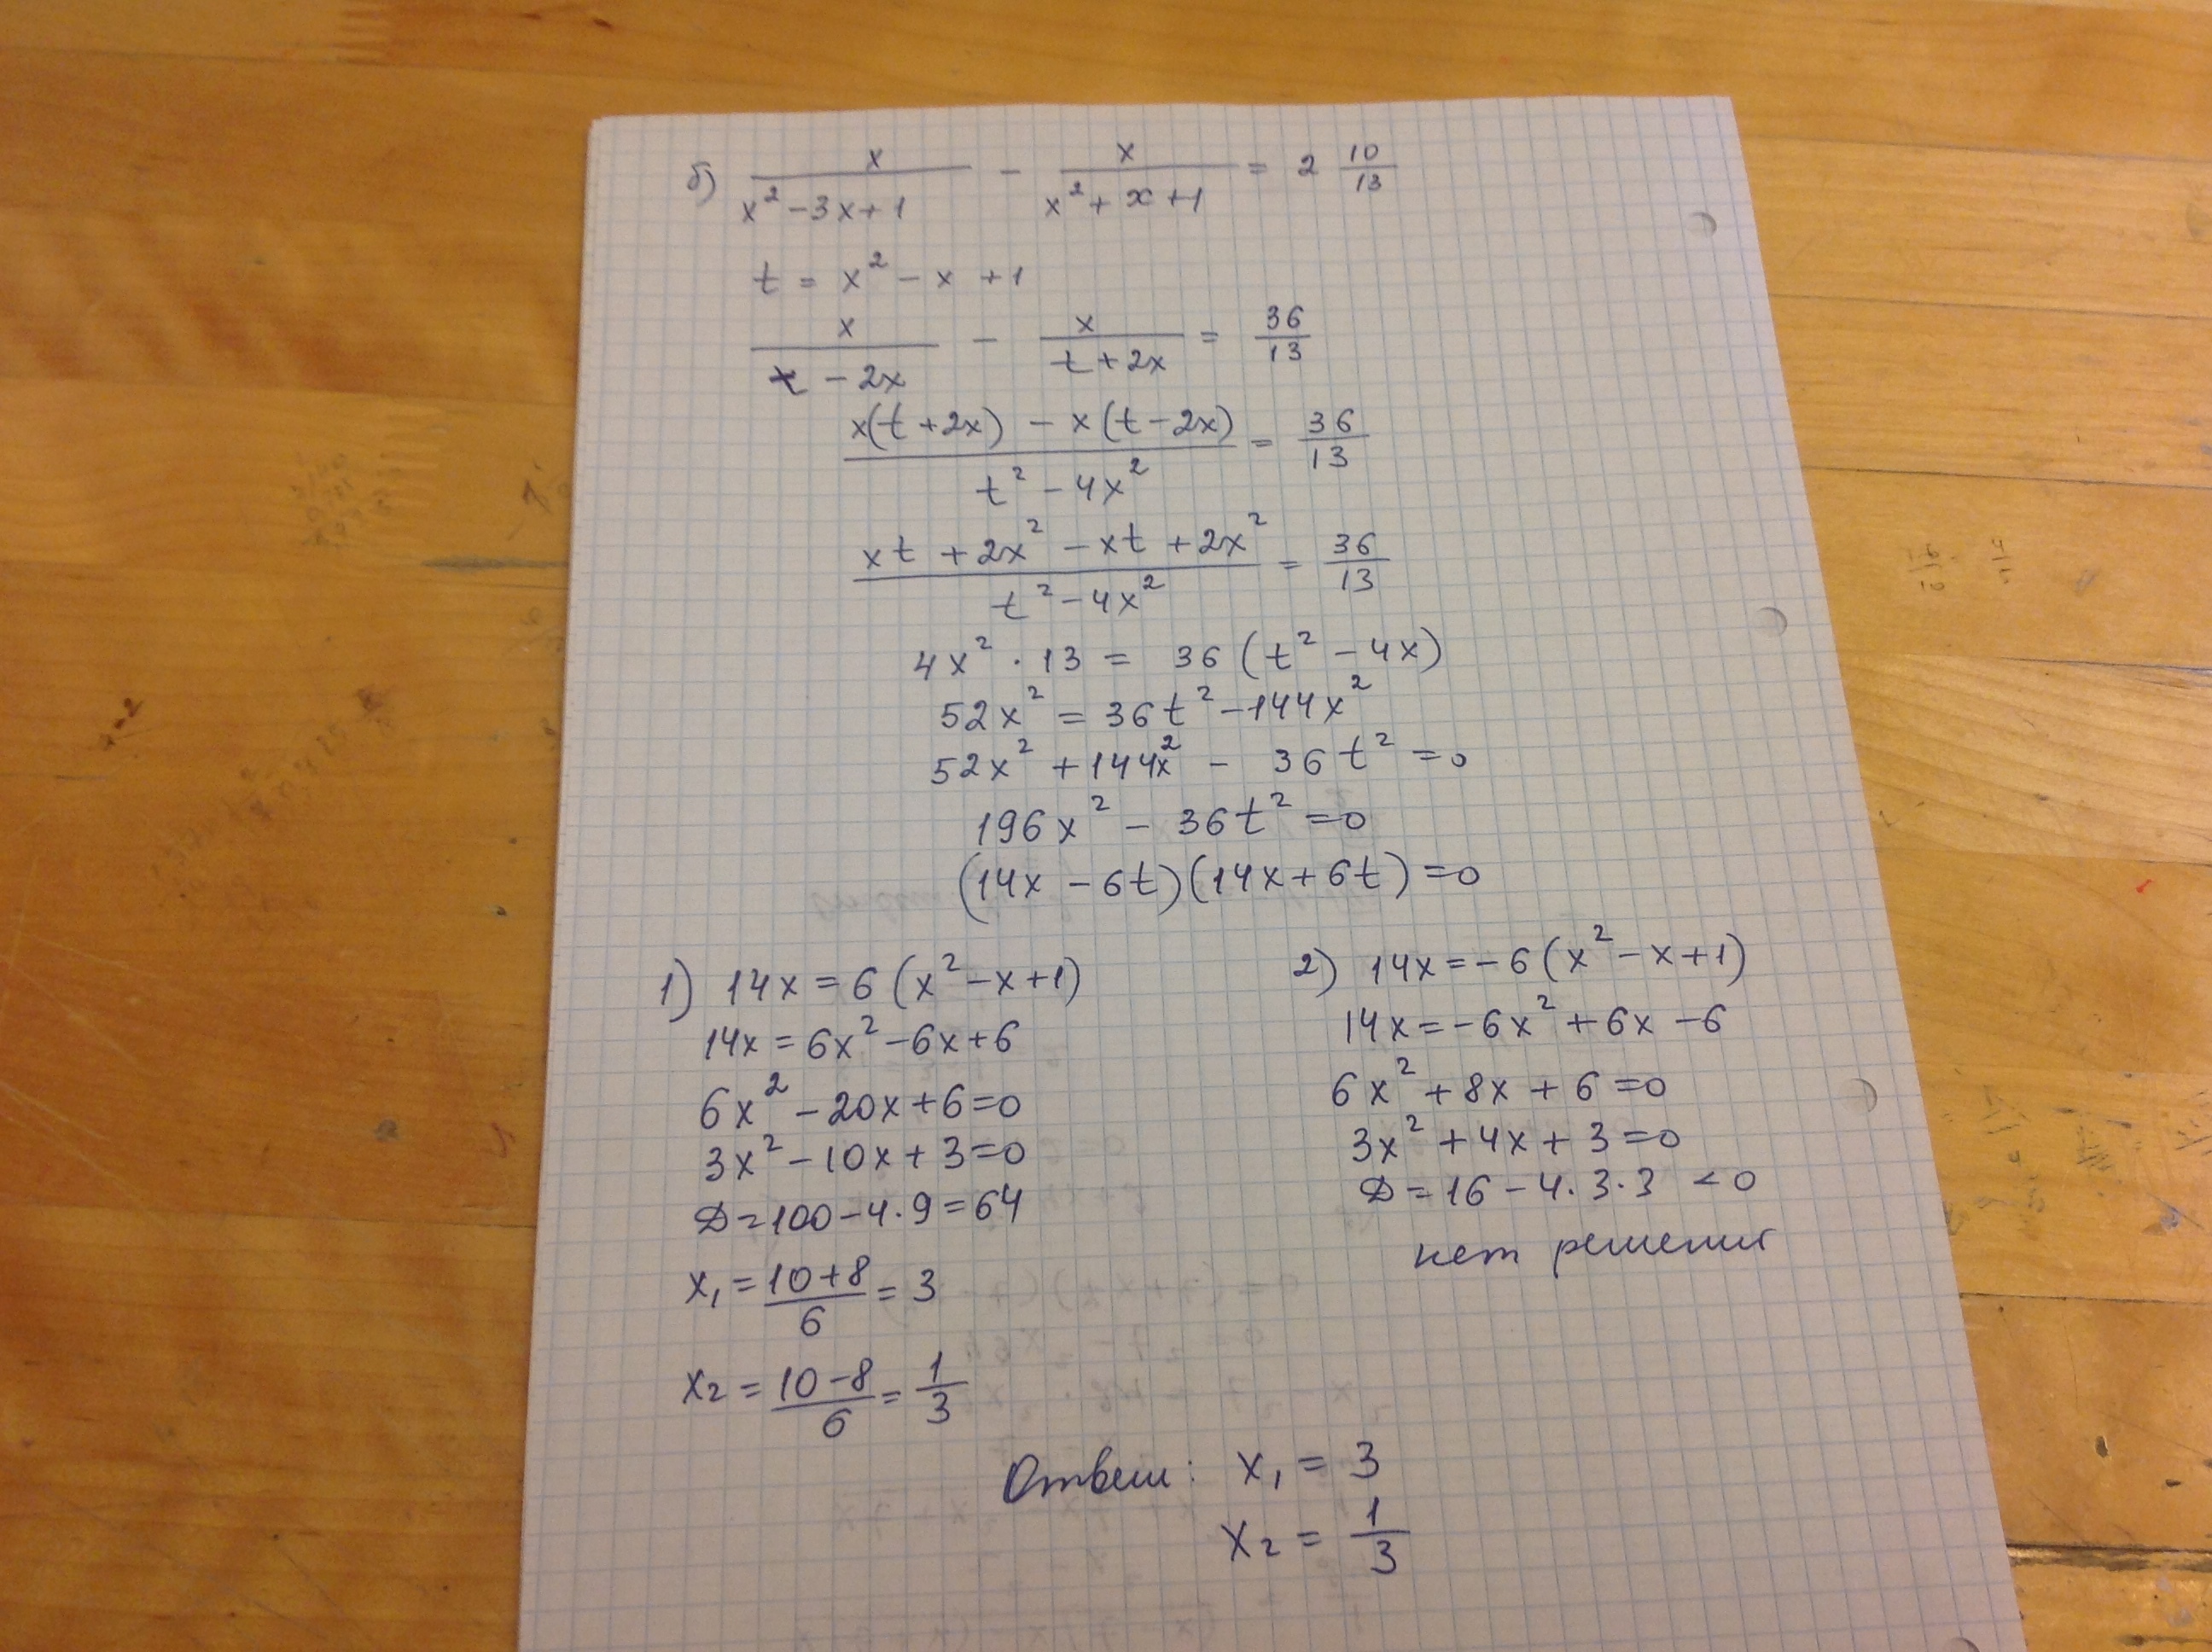 б) x/(x² - 3x + 1) - x/(x² + x + 1) = 2 10/13
t = x² - x + 1
x/(t - 2x) - x/(t + 2x) = 36/13
(x(t + 2x) - x(t - 2x))/(t² - 4x²) = 36/13
(xt + 2x² - xt + 2x²)/(t² - 4x²) = 36/13
4x² · 13 = 36(t² - 4x)
52x² = 36t² - 144x²
52x² + 144x² - 36t² = 0
196x² - 36t² = 0
(14x - 6t)(14x + 6t) = 0
1) 14x = 6(x² - x + 1)
14x = 6x² - 6x + 6
6x² - 20x + 6 = 0
3x² - 10x + 3 = 0
D = 100 - 4·9 = 64
x₁ = (10 + 8)/6 = 3
x₂ = (10 - 8)/6 = 1/3
2) 14x = -6(x² - x + 1)
14x = -6x² + 6x - 6
6x² + 8x + 6 = 0
3x² + 4x + 3 = 0
D = 16 - 4·3·3 < 0
нет решения
Ответ: x₁ = 3
x₂ = 1/3